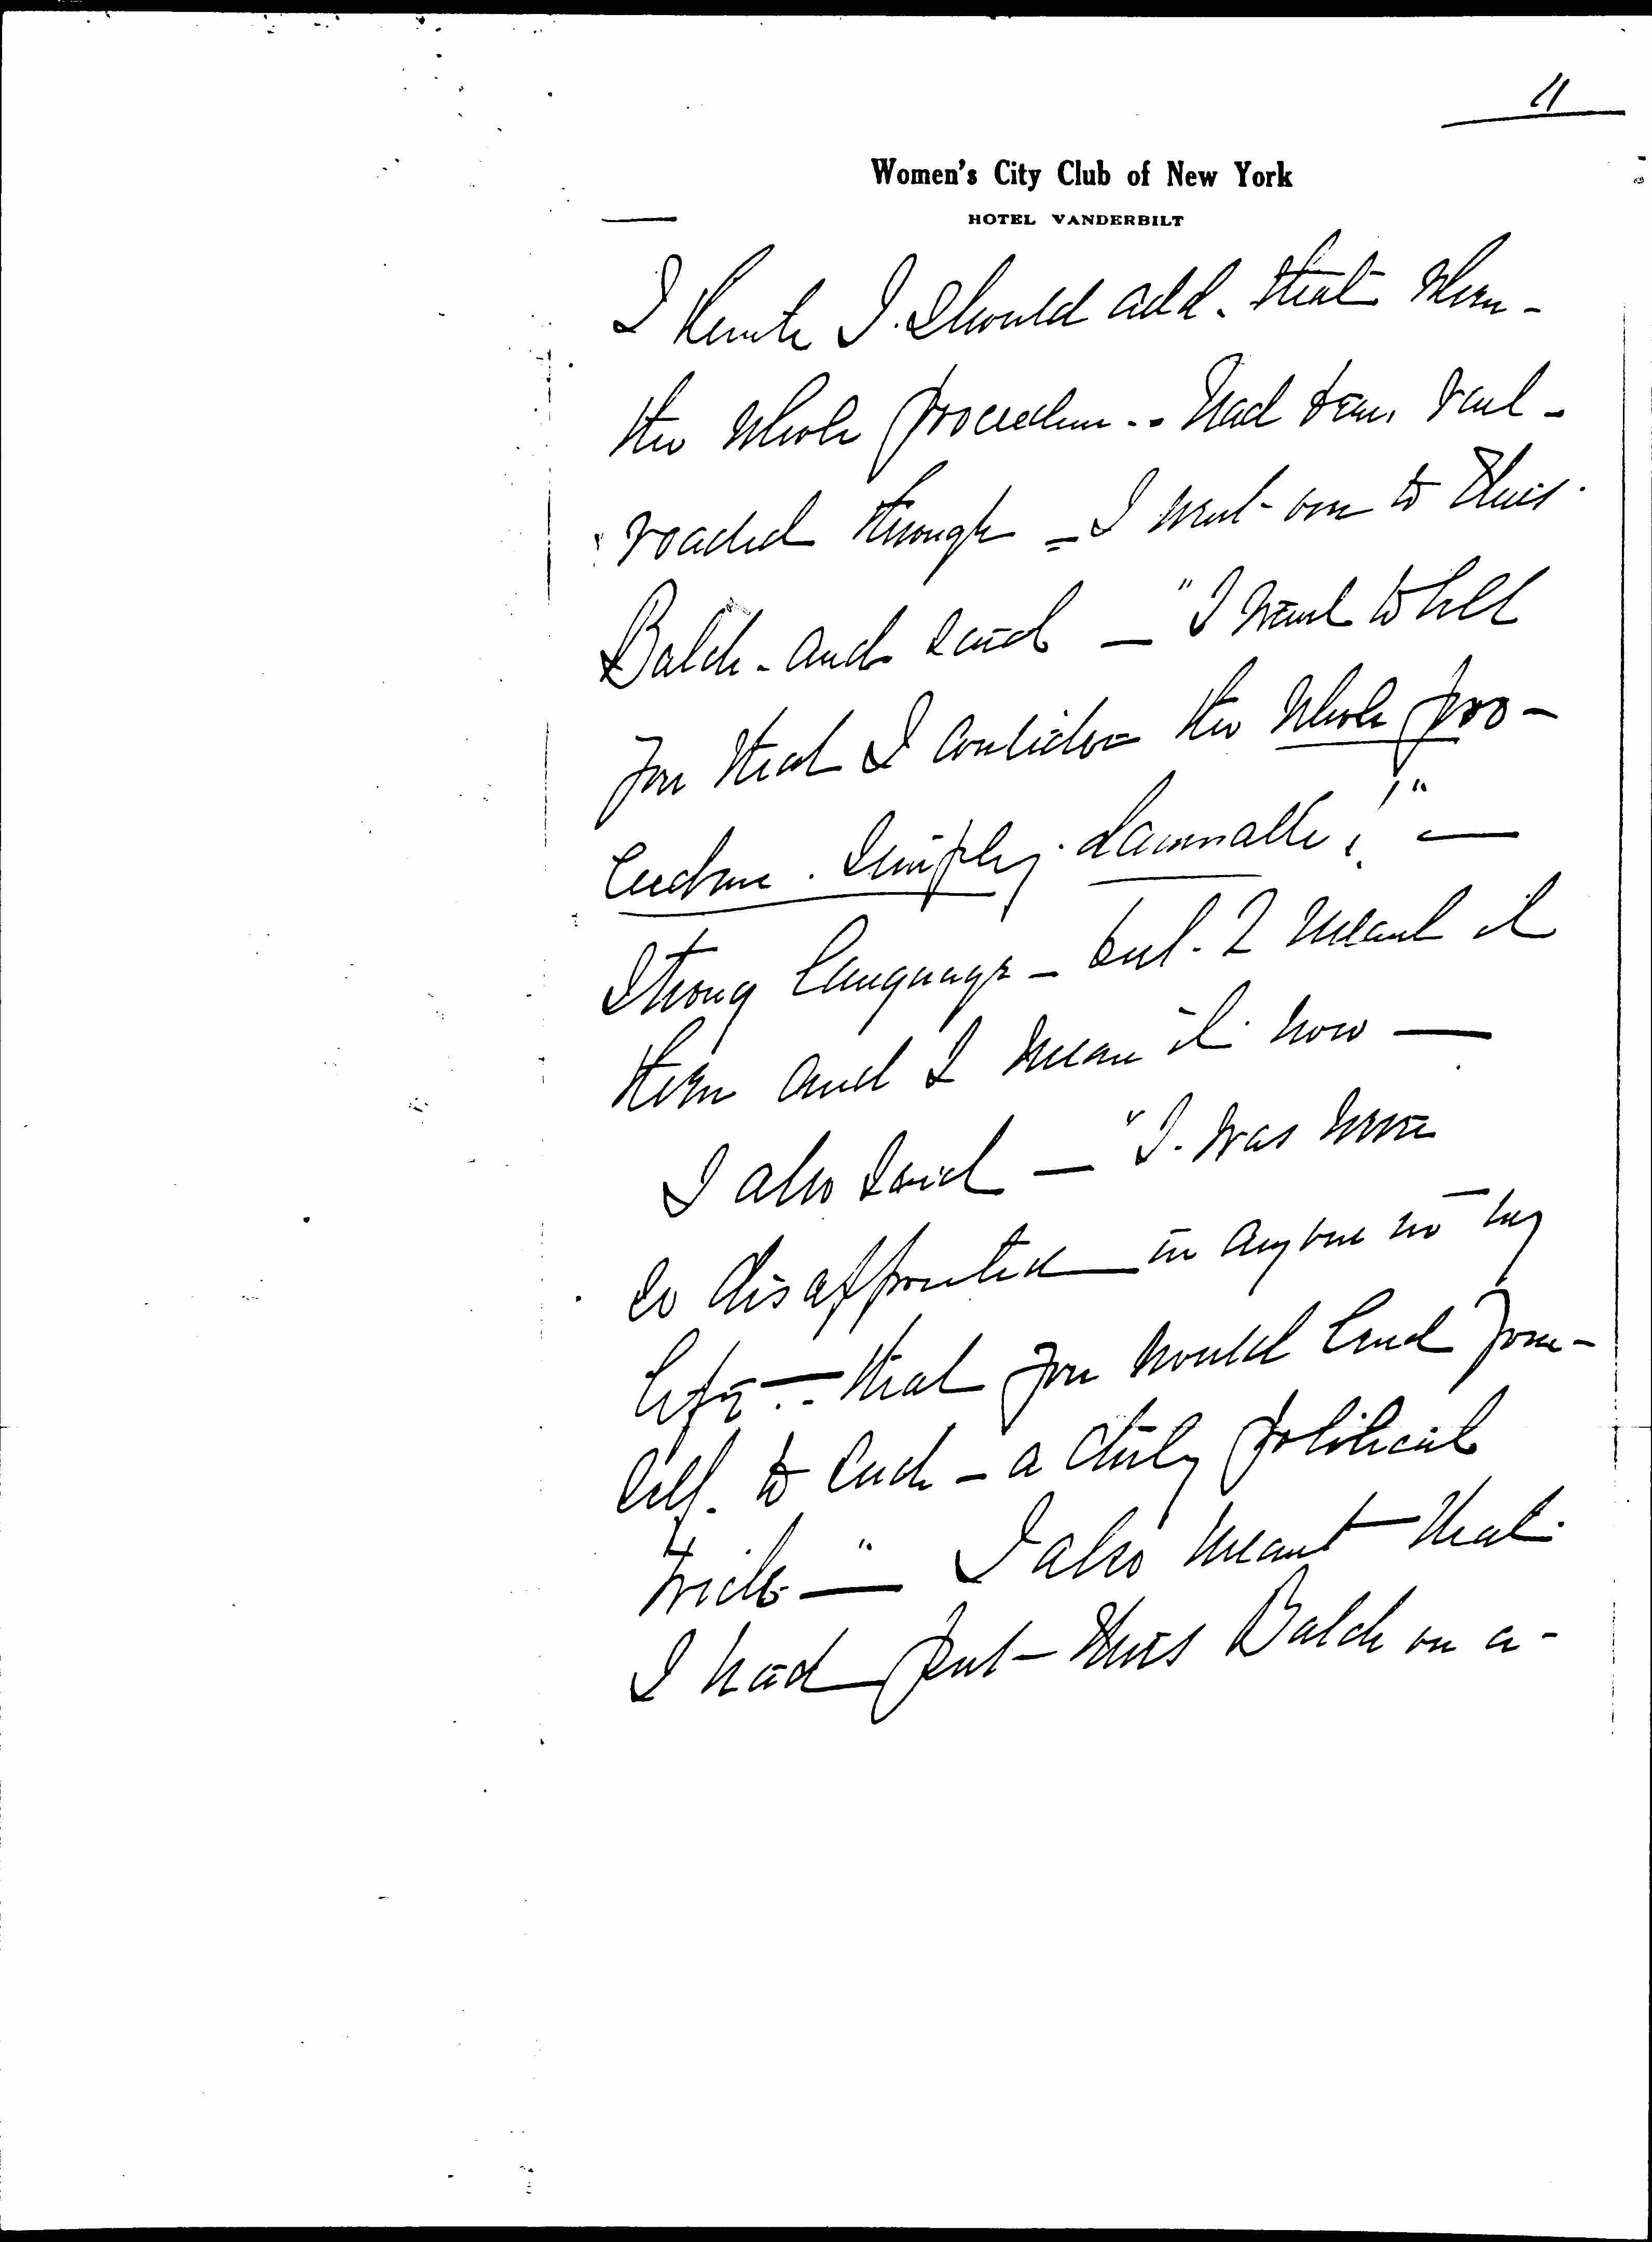 11
Women's City Club of New York
HOTEL VANDERBILT
I think I should add - that when -
the whole procedure - - had been rail -
roaded through = I went over to Miss
Balch - and said — "I want to tell
you that I consider the whole pro -
cedure . simply . damnable ! " —
Strong language - but - I meant it
then and I mean it now —
I also said — "I was never
so disappointed in anyone in my
life - - that you would lend your -
self to such - a dirty political
trick — " I also meant that
I had put - Miss Balch on a -